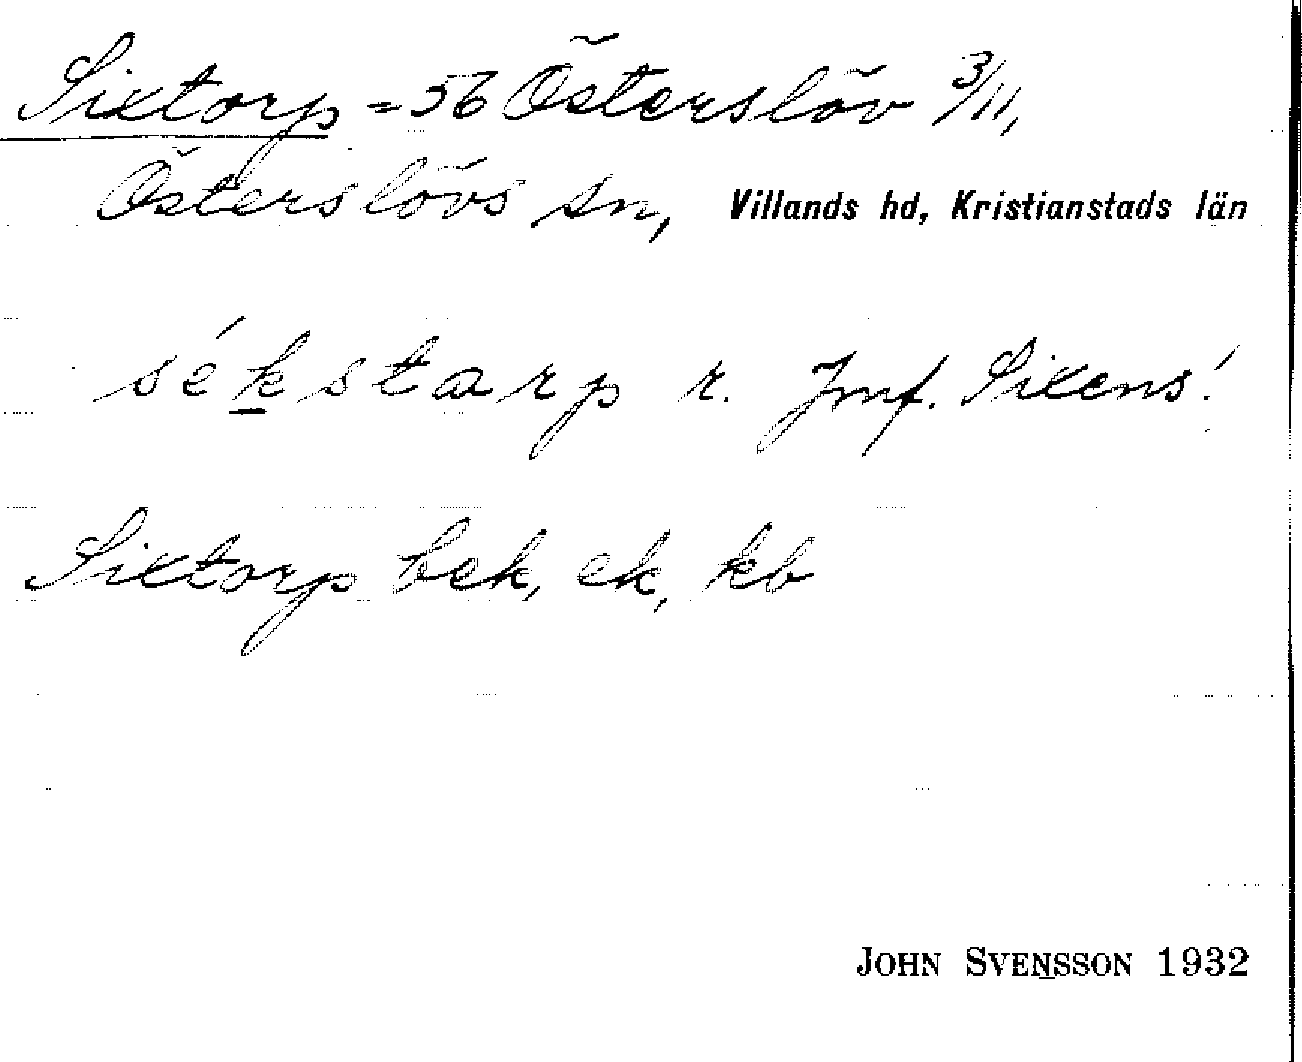 Sixtorp = 56 Österslöv 3/11,
Österslövs sn, Villands hd, Kristianstads län
sékstarp r. Jmf. Sixens!
Sixtorp bek, ek, kb
JOHN SVENSSON 1932